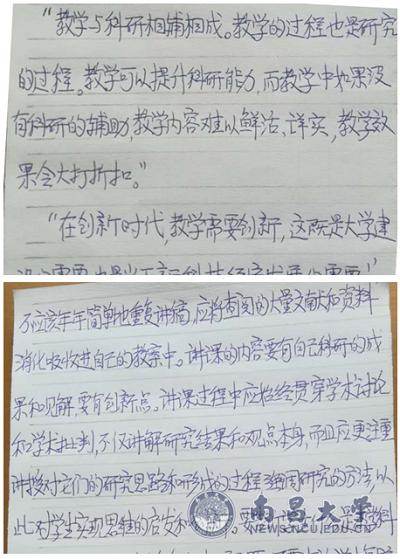 “教学与科研相辅相成。教学的过程也是研究
的过程。教学可以提升科研能力,而教学中如果没
有科研的辅助,教学内容难以鲜活、详实,教学效
果会大打折扣。”
“在创新时代,教学需要创新,这既是大学建
不应该年年简单地重复讲稿,应将查阅的大量文献和资料
消化吸收进自己的教案中。讲课的内容要有自己科研的成
果和见解,要有创新点。讲课过程中应始终贯穿学术讨论
和学术批判,不仅讲解研究结果和观点本身,而且应更注重
讲授对它们的研究思路和 的过程 研究的方法,以
此对学生实现思维的启发和
南昌大学
NEWS.NCU.EDU.CN